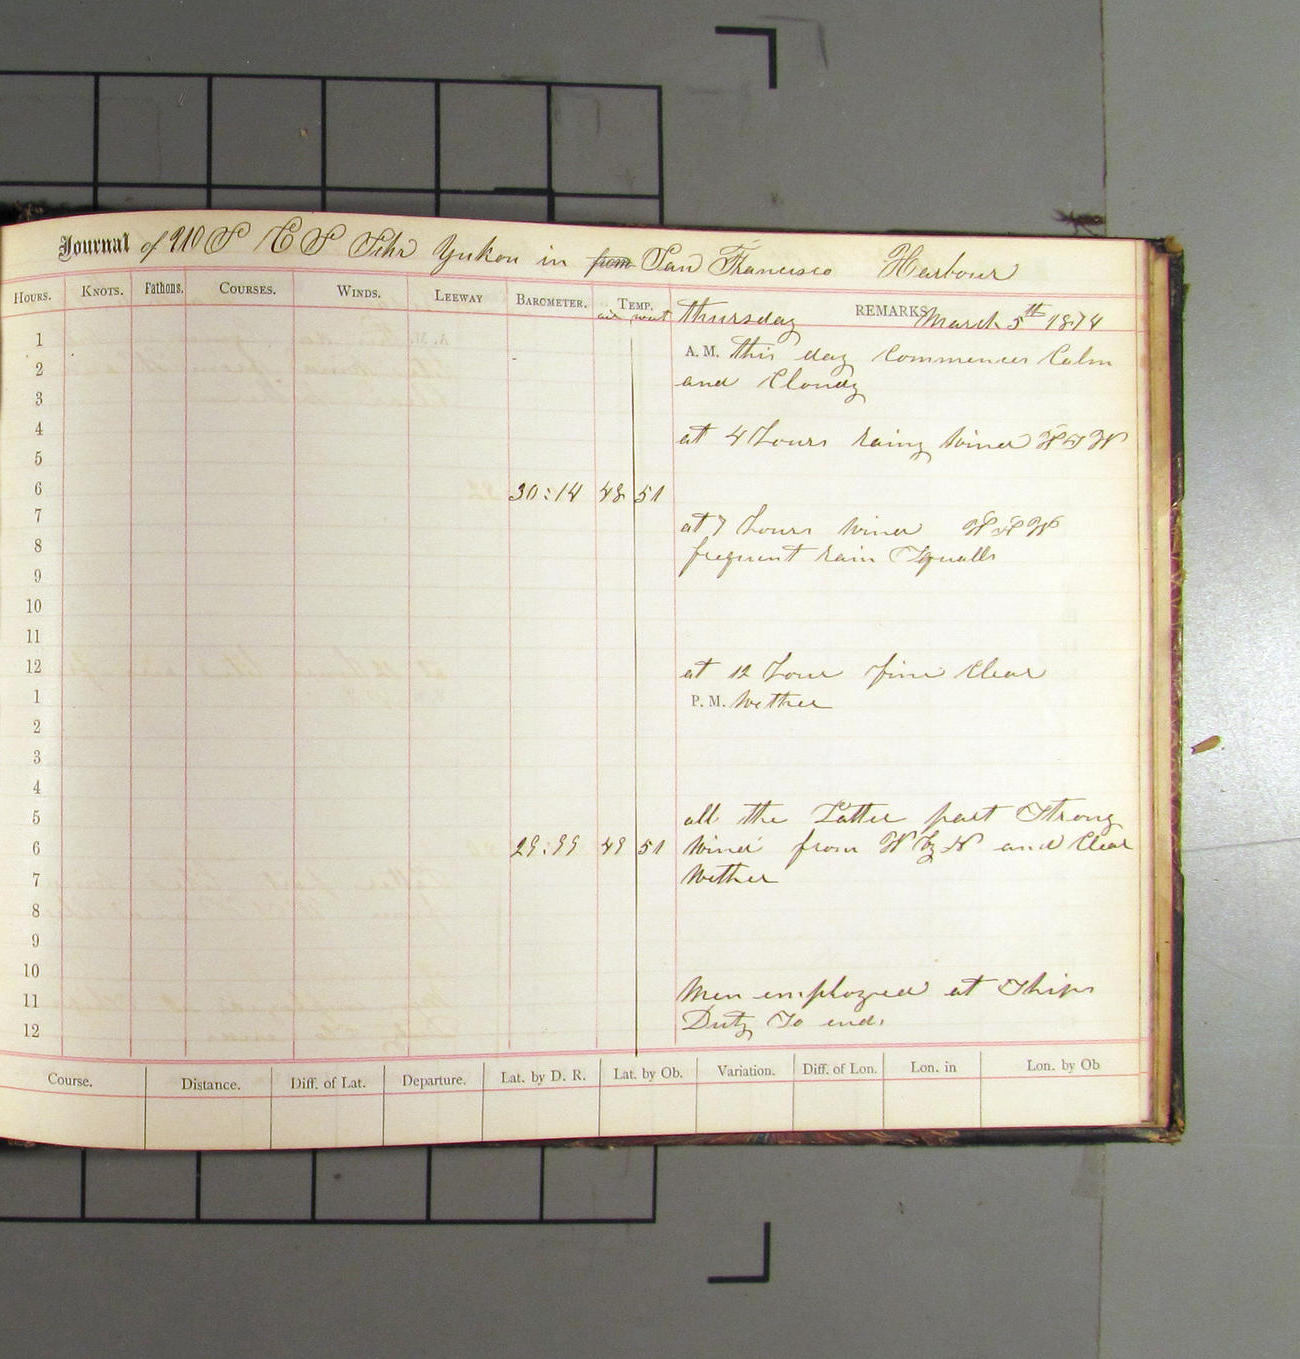 Journal of U S C S Schr Yukon in from San Francisco Harbour
Hours. Knots. Fathoms. Courses. Winds. Leeway Barometer. Temp. REMARKS
air wat Thursday March 5th 1874
1
A.M. this day Commences Calm
2
and Cloudy
3
4 at 4 hours rainy Wind
5
6 30:14 48 51
7 at 7 hours Wind
8 frequent rain Squalls
9
10
11
12 at 12 hour fine Clear
1 P.M. Wether
2
3
4
5 all the Latter part Strong
6 29:99 49 51 Wind from W by N and Clear
7 Wether
8
9
10
11 Men employed at Ships
12 Duty So ends
Course. Distance. Diff. of Lat. Departure. Lat. by D. R. Lat. by Ob. Variation. Diff. of Lon. Lon. in Lon. by Ob